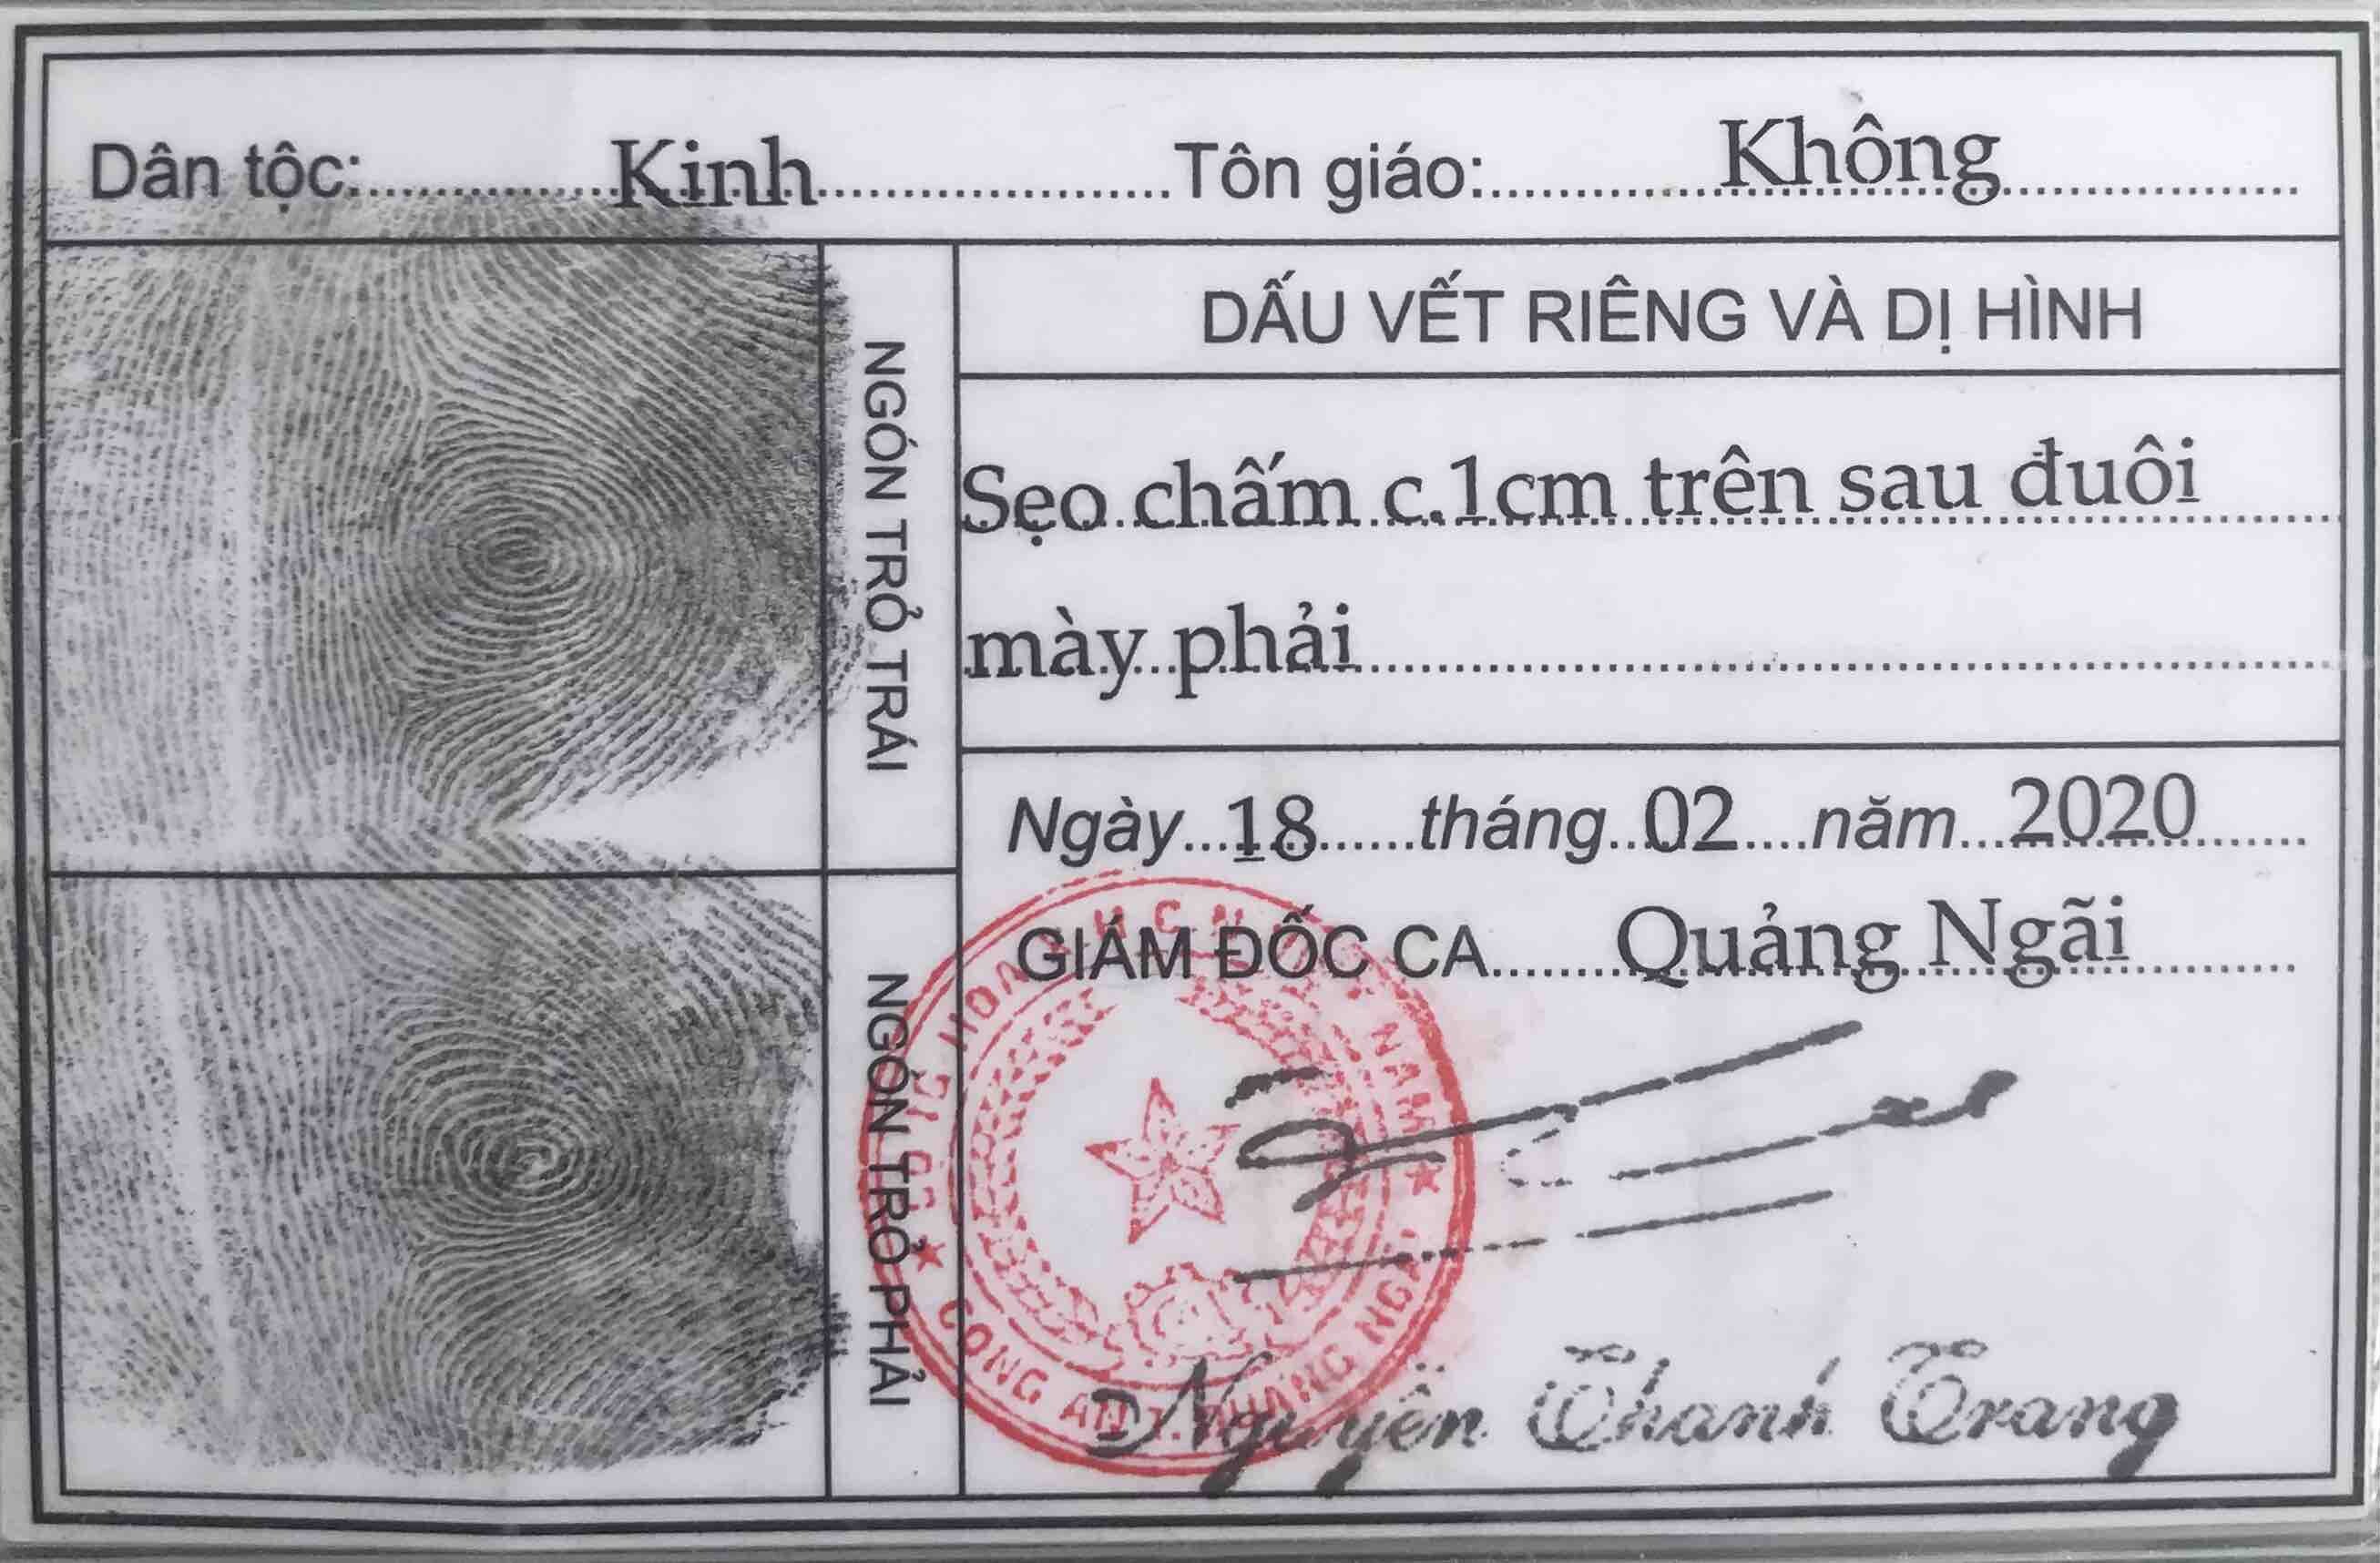 Dân tộc: Kinh Tôn giáo: Không
NGÓN TRỎ TRÁI
DẤU VẾT RIÊNG VÀ DỊ HÌNH
Sẹo chấm c.1cm trên sau đuôi
mày phải
Ngày 18 tháng 02 năm 2020
GIÁM ĐỐC CA Quảng Ngãi
NGÓN TRỎ PHẢI
NAM
CÔNG AN T. QUẢNG NGÃI
Nguyễn Thanh Trang